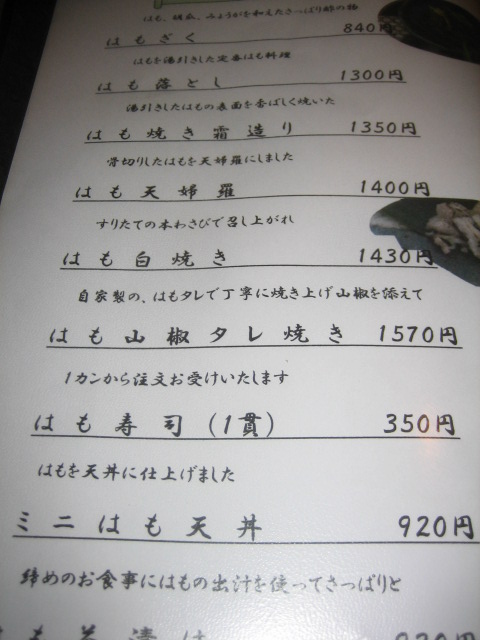 はも、胡瓜、みょうがを和えたさっぱり酢の物
はもざく 840円
はもを湯引きした定番はも料理
はも落とし 1300円
湯引きしたはもの表面を香ばしく焼いた
はも焼き霜造り 1350円
骨切りしたはもを天婦羅にしました
はも天婦羅 1400円
すりたての本わさびで召し上がれ
はも白焼き 1430円
自家製の、はもタレで丁寧に焼き上げ山椒を添えて
はも山椒タレ焼き 1570円
1カンから注文お受けいたします
はも寿司(1貫) 350円
はもを天丼に仕上げました
ミニはも天丼 920円
締めのお食事にはもの出汁を使ってさっぱりと
はも茶漬け